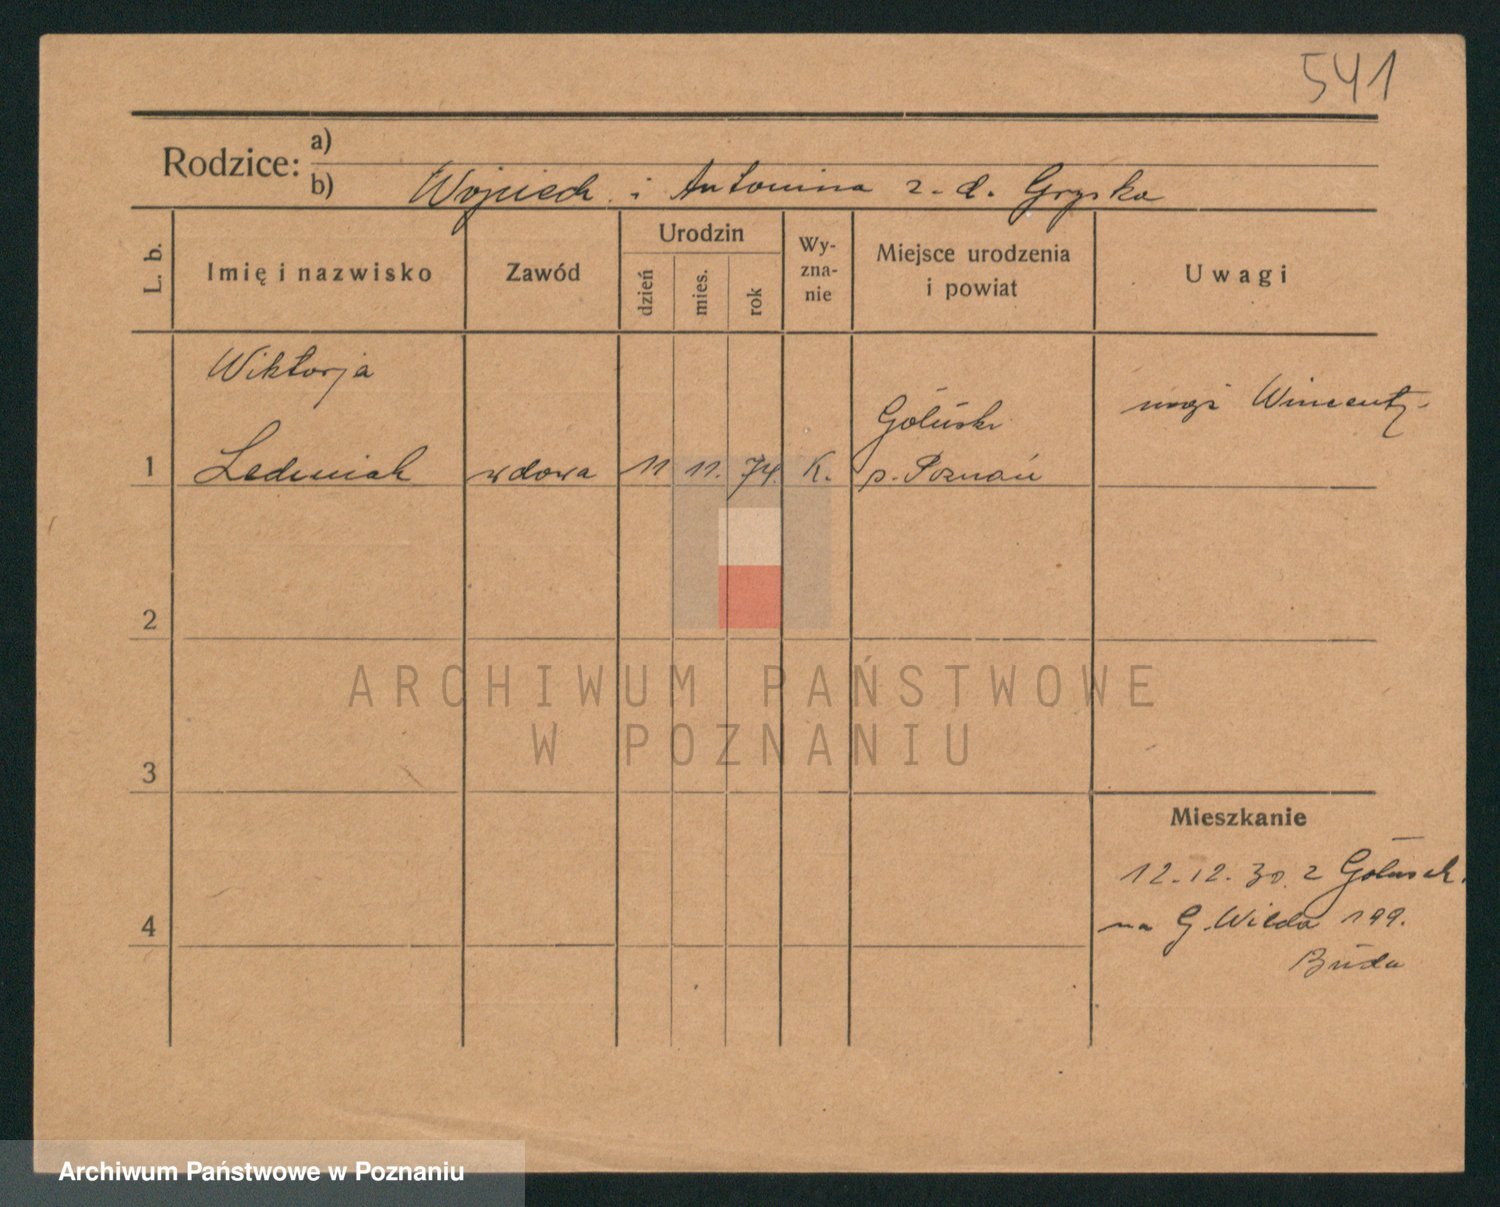 541
Rodzice: a)
b) Wojciech i Antonina z-d. Gryska
L. b.
Imię i nazwisko
Zawód
Urodzin
dzień
mies.
rok
Wy-
zna-
nie
Miejsce urodzenia
i powiat
Uwagi
Wiktorja
1 Ledwniak wdowa 11 11. 74. K.
Gołuski
p. Poznań
mąż Wincenty
2
3
4
Mieszkanie
12.-12.-30. z Gołusek.
na G. Wilda 199.
Buda
ARCHIWUM PAŃSTWOWE
W POZNANIU
Archiwum Państwowe w Poznaniu